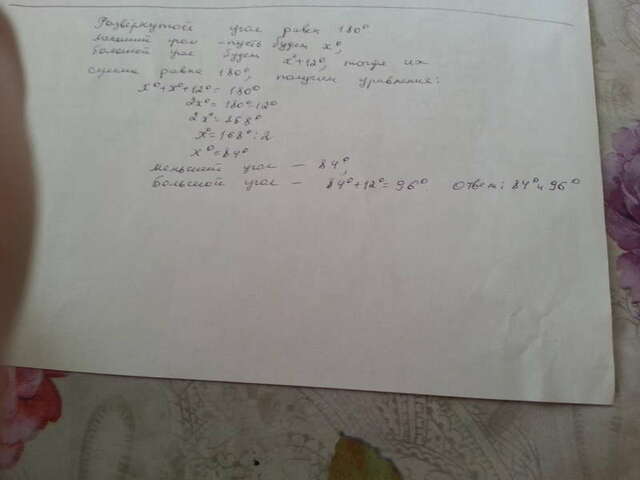 Развернутой угол равен 180°
меньший угол - пусть будет x°,
большой угол будет x°+12°, тогда их
сумма равна 180°, получим уравнения:
x°+x°+12°=180°
2x°=180°-12°
2x°=168°
x°=168°:2
x°=84°
меньший угол — 84°,
большой угол — 84°+12°=96°. Ответ: 84° и 96°